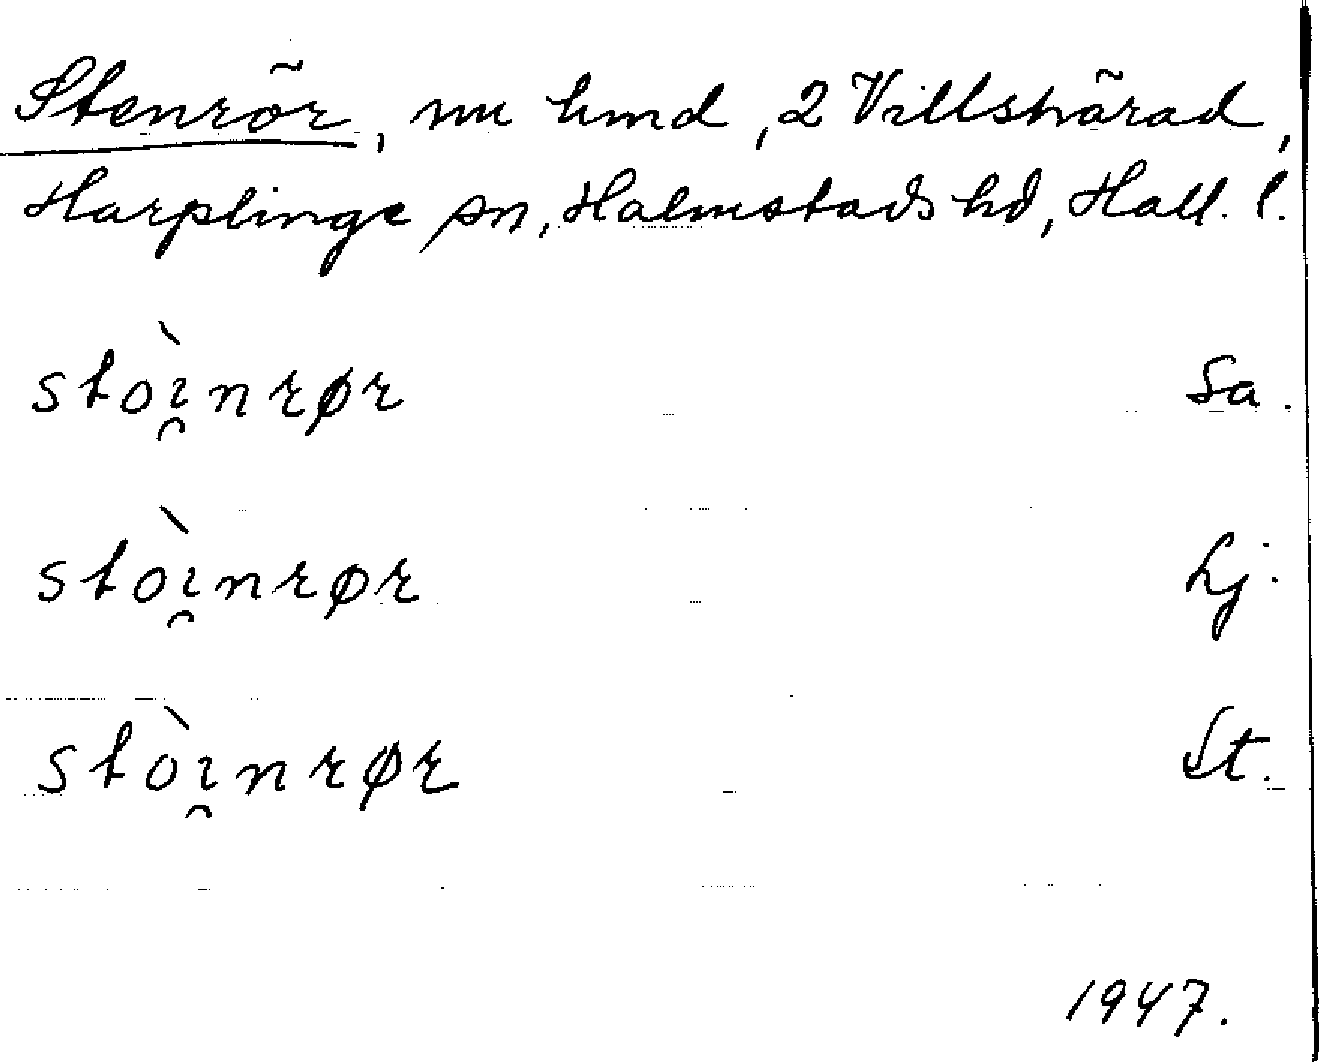 Stenrör, nu hmd, 2 Villshärad,
Harplinge sn, Halmstads hd, Hall. l.
stòı̯nrør Sa.
stòı̯nrør Lj.
stòı̯nrør St.
1947.